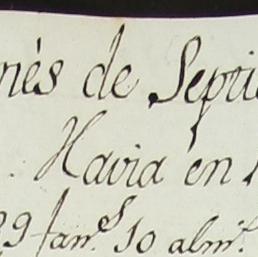 més de Septi
Havia en
29 fam.s 10 alm.s